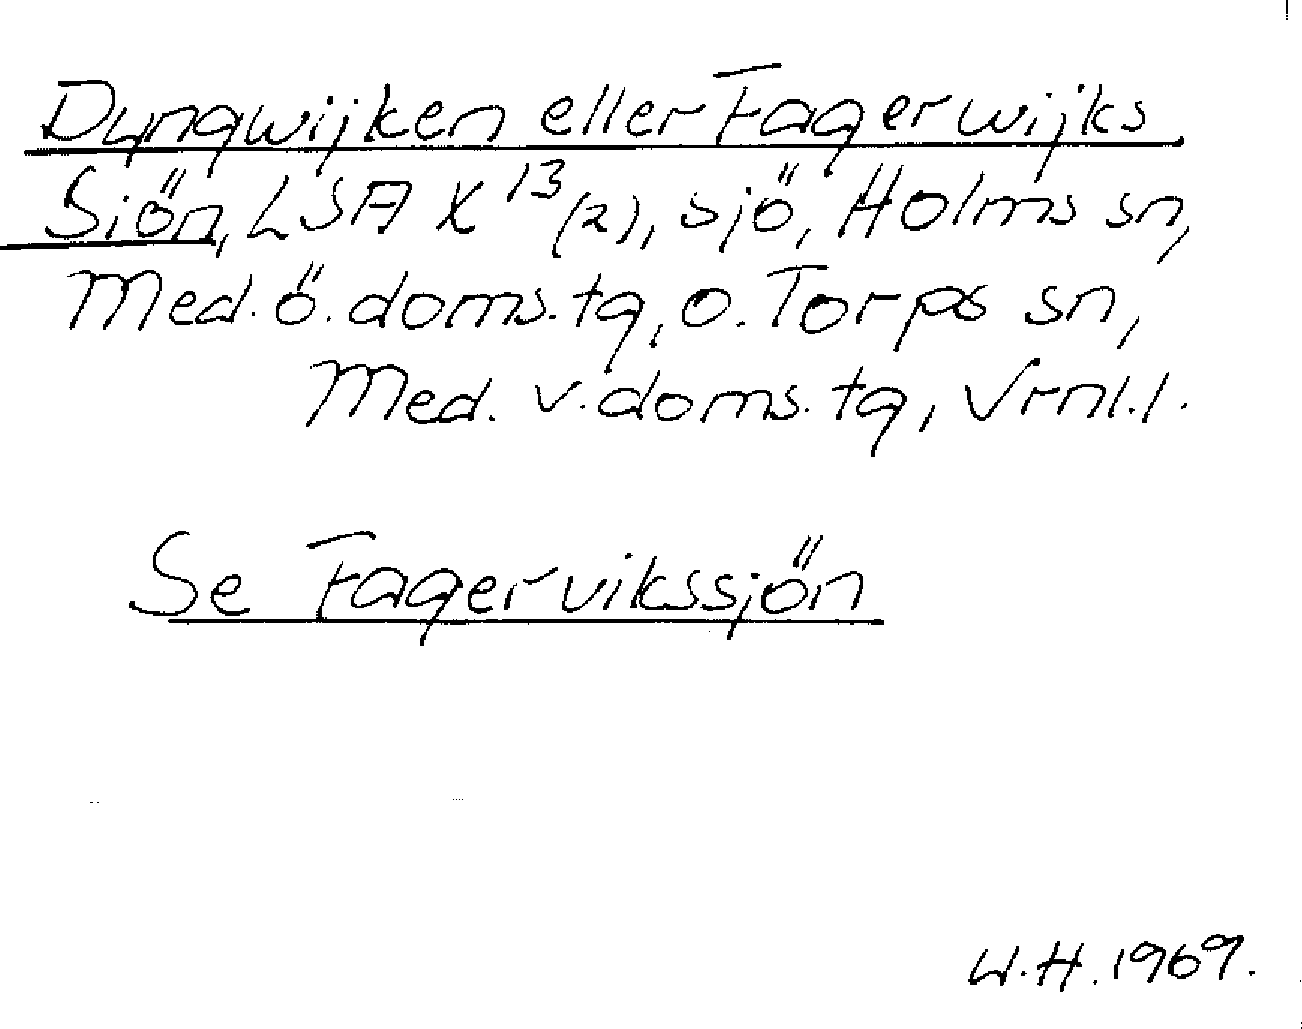 Dyngwijken eller Fagerwijks
Siön, LSA X 13 (2), sjö, Holms sn,
Med. ö. doms. tg, o. Torps sn,
Med. v. doms. tg, Vrml. l.
Se Fagervikssjön
W.H. 1969.